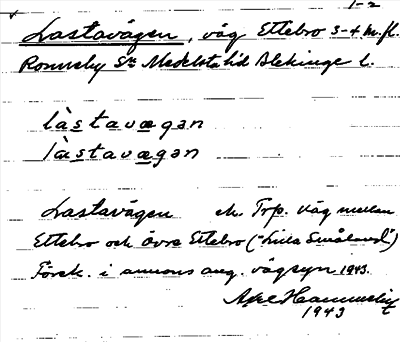 1-2
Lastavägen, väg Ettebro 3-4 m.fl.
Ronneby Sn Medelsta hd Blekinge l.
làstavægən
làstavægən
Lastavägen ek. Trp. Väg mellan
Ettebro och övre Ettebro ("Lilla Småland")
Försk. i annons ang. vägsyn 1943.
Axel
1943